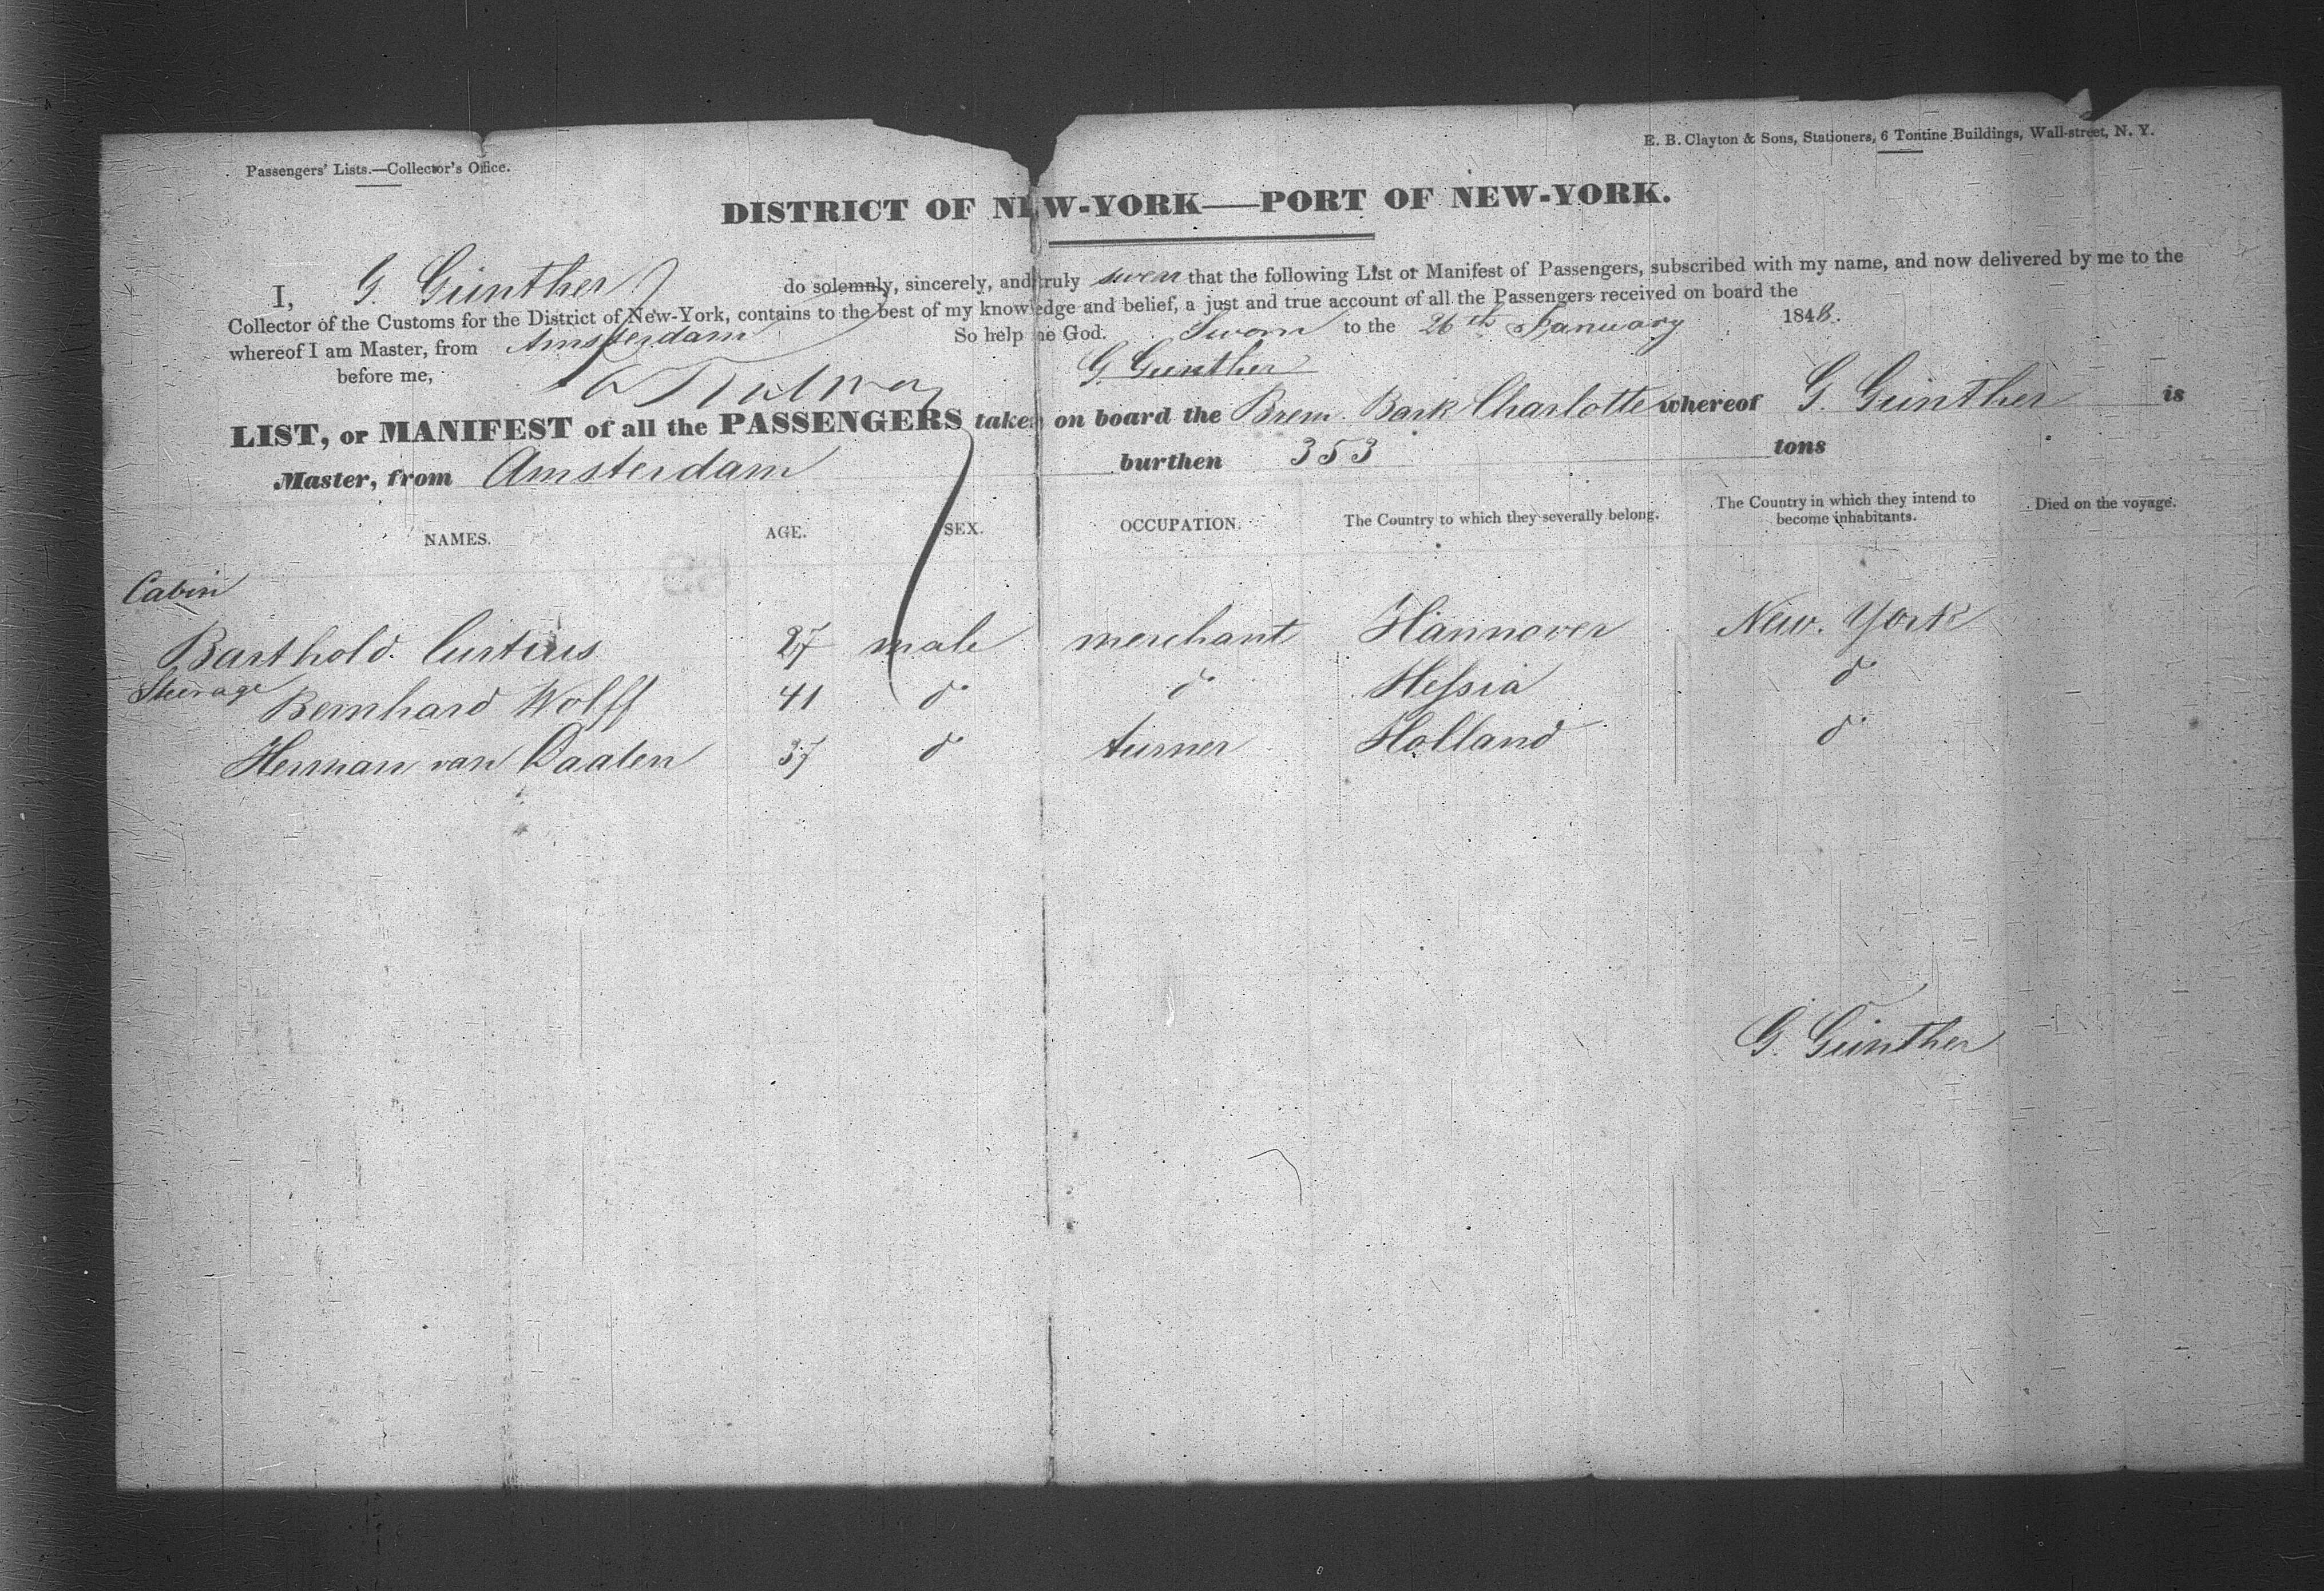 Passengers' Lists.—Collector's Office.
E. B. Clayton & Sons, Stationers, 6 Tontine Buildings, Wall-street, N. Y.
DISTRICT OF NEW-YORK—PORT OF NEW-YORK.
I, G. Günther do solemnly, sincerely, and truly swear that the following List or Manifest of Passengers, subscribed with my name, and now delivered by me to the
Collector of the Customs for the District of New-York, contains to the best of my knowledge and belief, a just and true account of all the Passengers received on board the
whereof I am Master, from Amsterdam So help me God. Sworn to the 26th January 1848.
before me, G. Günther
LIST, or MANIFEST of all the PASSENGERS taken on board the Brem. Bark Charlotte whereof G. Günther is
Master, from Amsterdam burthen 353 tons
NAMES. AGE. SEX. OCCUPATION. The Country to which they severally belong. The Country in which they intend to become inhabitants. Died on the voyage.
Cabin
Barthold. Curtius 27 male merchant Hannover New. York
Steerage Bernhard Wolff 41 do do Hessia do
Herman van Daalen 37 do turner Holland do
G. Günther